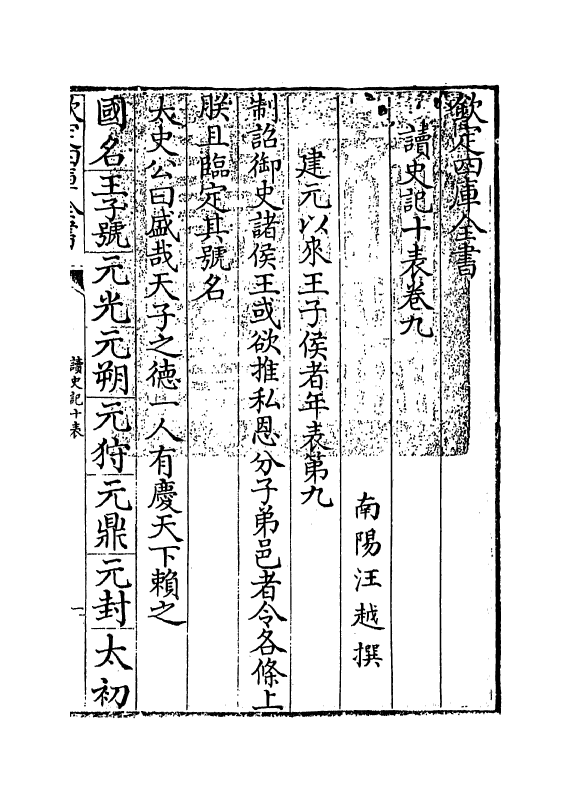 欽定四庫全書
讀史記十表卷九
南陽汪越撰
建元以來王子侯者年表第九
制詔御史諸侯王或欲推私恩分子弟邑者令各條上
朕且臨定其號名
太史公曰盛哉天子之德一人有慶天下賴之
國名 王子號 元光 元朔 元狩 元鼎 元封 太初
欽定四庫全書
讀史記十表
一